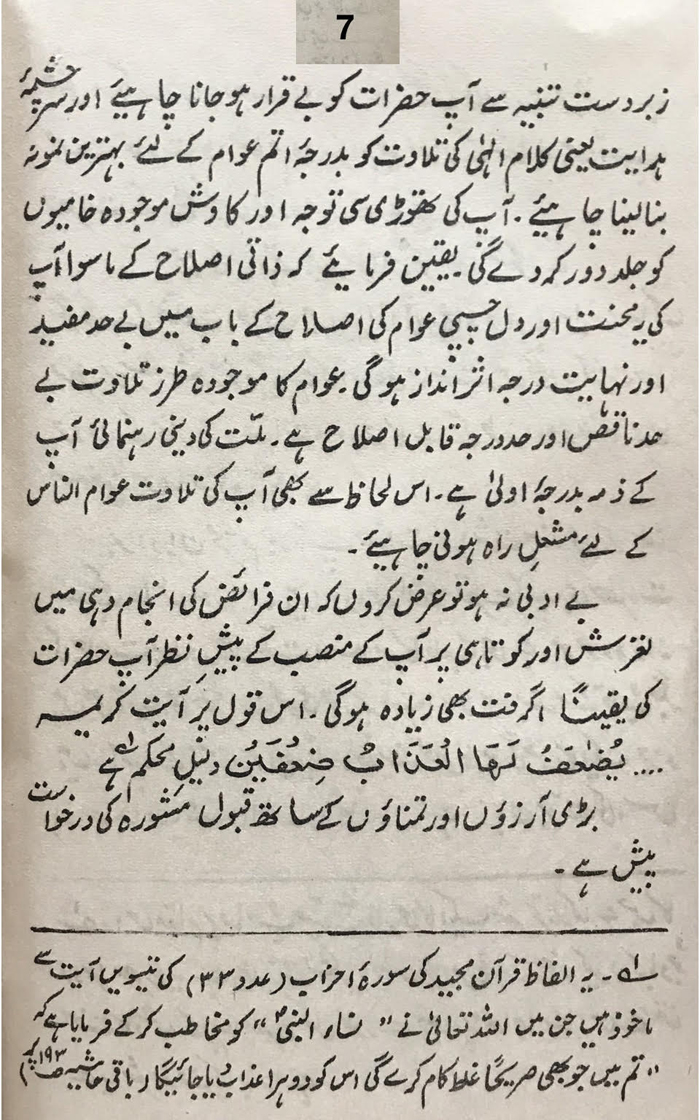 7
زبردست تنبیہ سے آپ حضرات کو بے قرار ہو جانا چاہیئے اور سرچشمۂ
ہدایت یعنی کلام الٰہی کی تلاوت کو بدرجۂ اتم عوام کے لئے بہترین نمونہ
بنا لینا چاہیئے . آپ کی تھوڑی سی توجہ اور کاوش موجودہ خامیوں
کو جلد دور کر دے گی یقین فرمایئے کہ ذاتی اصلاح کے ماسوا آپ
کی یہ محنت اور دل چسپی عوام کی اصلاح کے باب میں بے حد مفید
اور نہایت درجہ اثر انداز ہو گی . عوام کا موجودہ طرز تلاوت بے
حد ناقص اور حد درجہ قابل اصلاح ہے ۔ ملّت کی دینی رہنمائی آپ
کے ذمہ بدرجۂ اولیٰ ہے ۔ اس لحاظ سے بھی آپ کی تلاوت عوام الناس
کے لئے مشعلِ راہ ہونی چاہیئے ۔
بے ادبی نہ ہو تو عرض کروں کہ ان فرائض کی انجام دہی میں
لغزش اور کوتاہی پر آپ کے منصب کے پیشِ نظر آپ حضرات
کی یقیناً گرفت بھی زیادہ ہوگی . اس قول پر آیت کریمہ
.... یُضٰعَفُ لَہَا الْعَذَابُ ضِعْفَیْنِ دلیلِ محکم ہے ؎۱
بڑی آرزؤں اور تمناؤں کے ساتھ قبول مشورہ کی درخواست
پیش ہے ۔
؎۱ ۔ یہ الفاظ قرآن مجید کی سورۂ احزاب (عدد ۳۳) کی تیسویں آیت سے
ماخوذ ہیں جن میں اللہ تعالیٰ نے " نساء النبیؐ " کو مخاطب کر کے فرمایا ہے کہ
" تم میں جو بھی صریحاً غلط کام کرے گی اس کو دوہرا عذاب دیا جائیگا ( باقی حاشیہ ص ۱۹۳ پر )